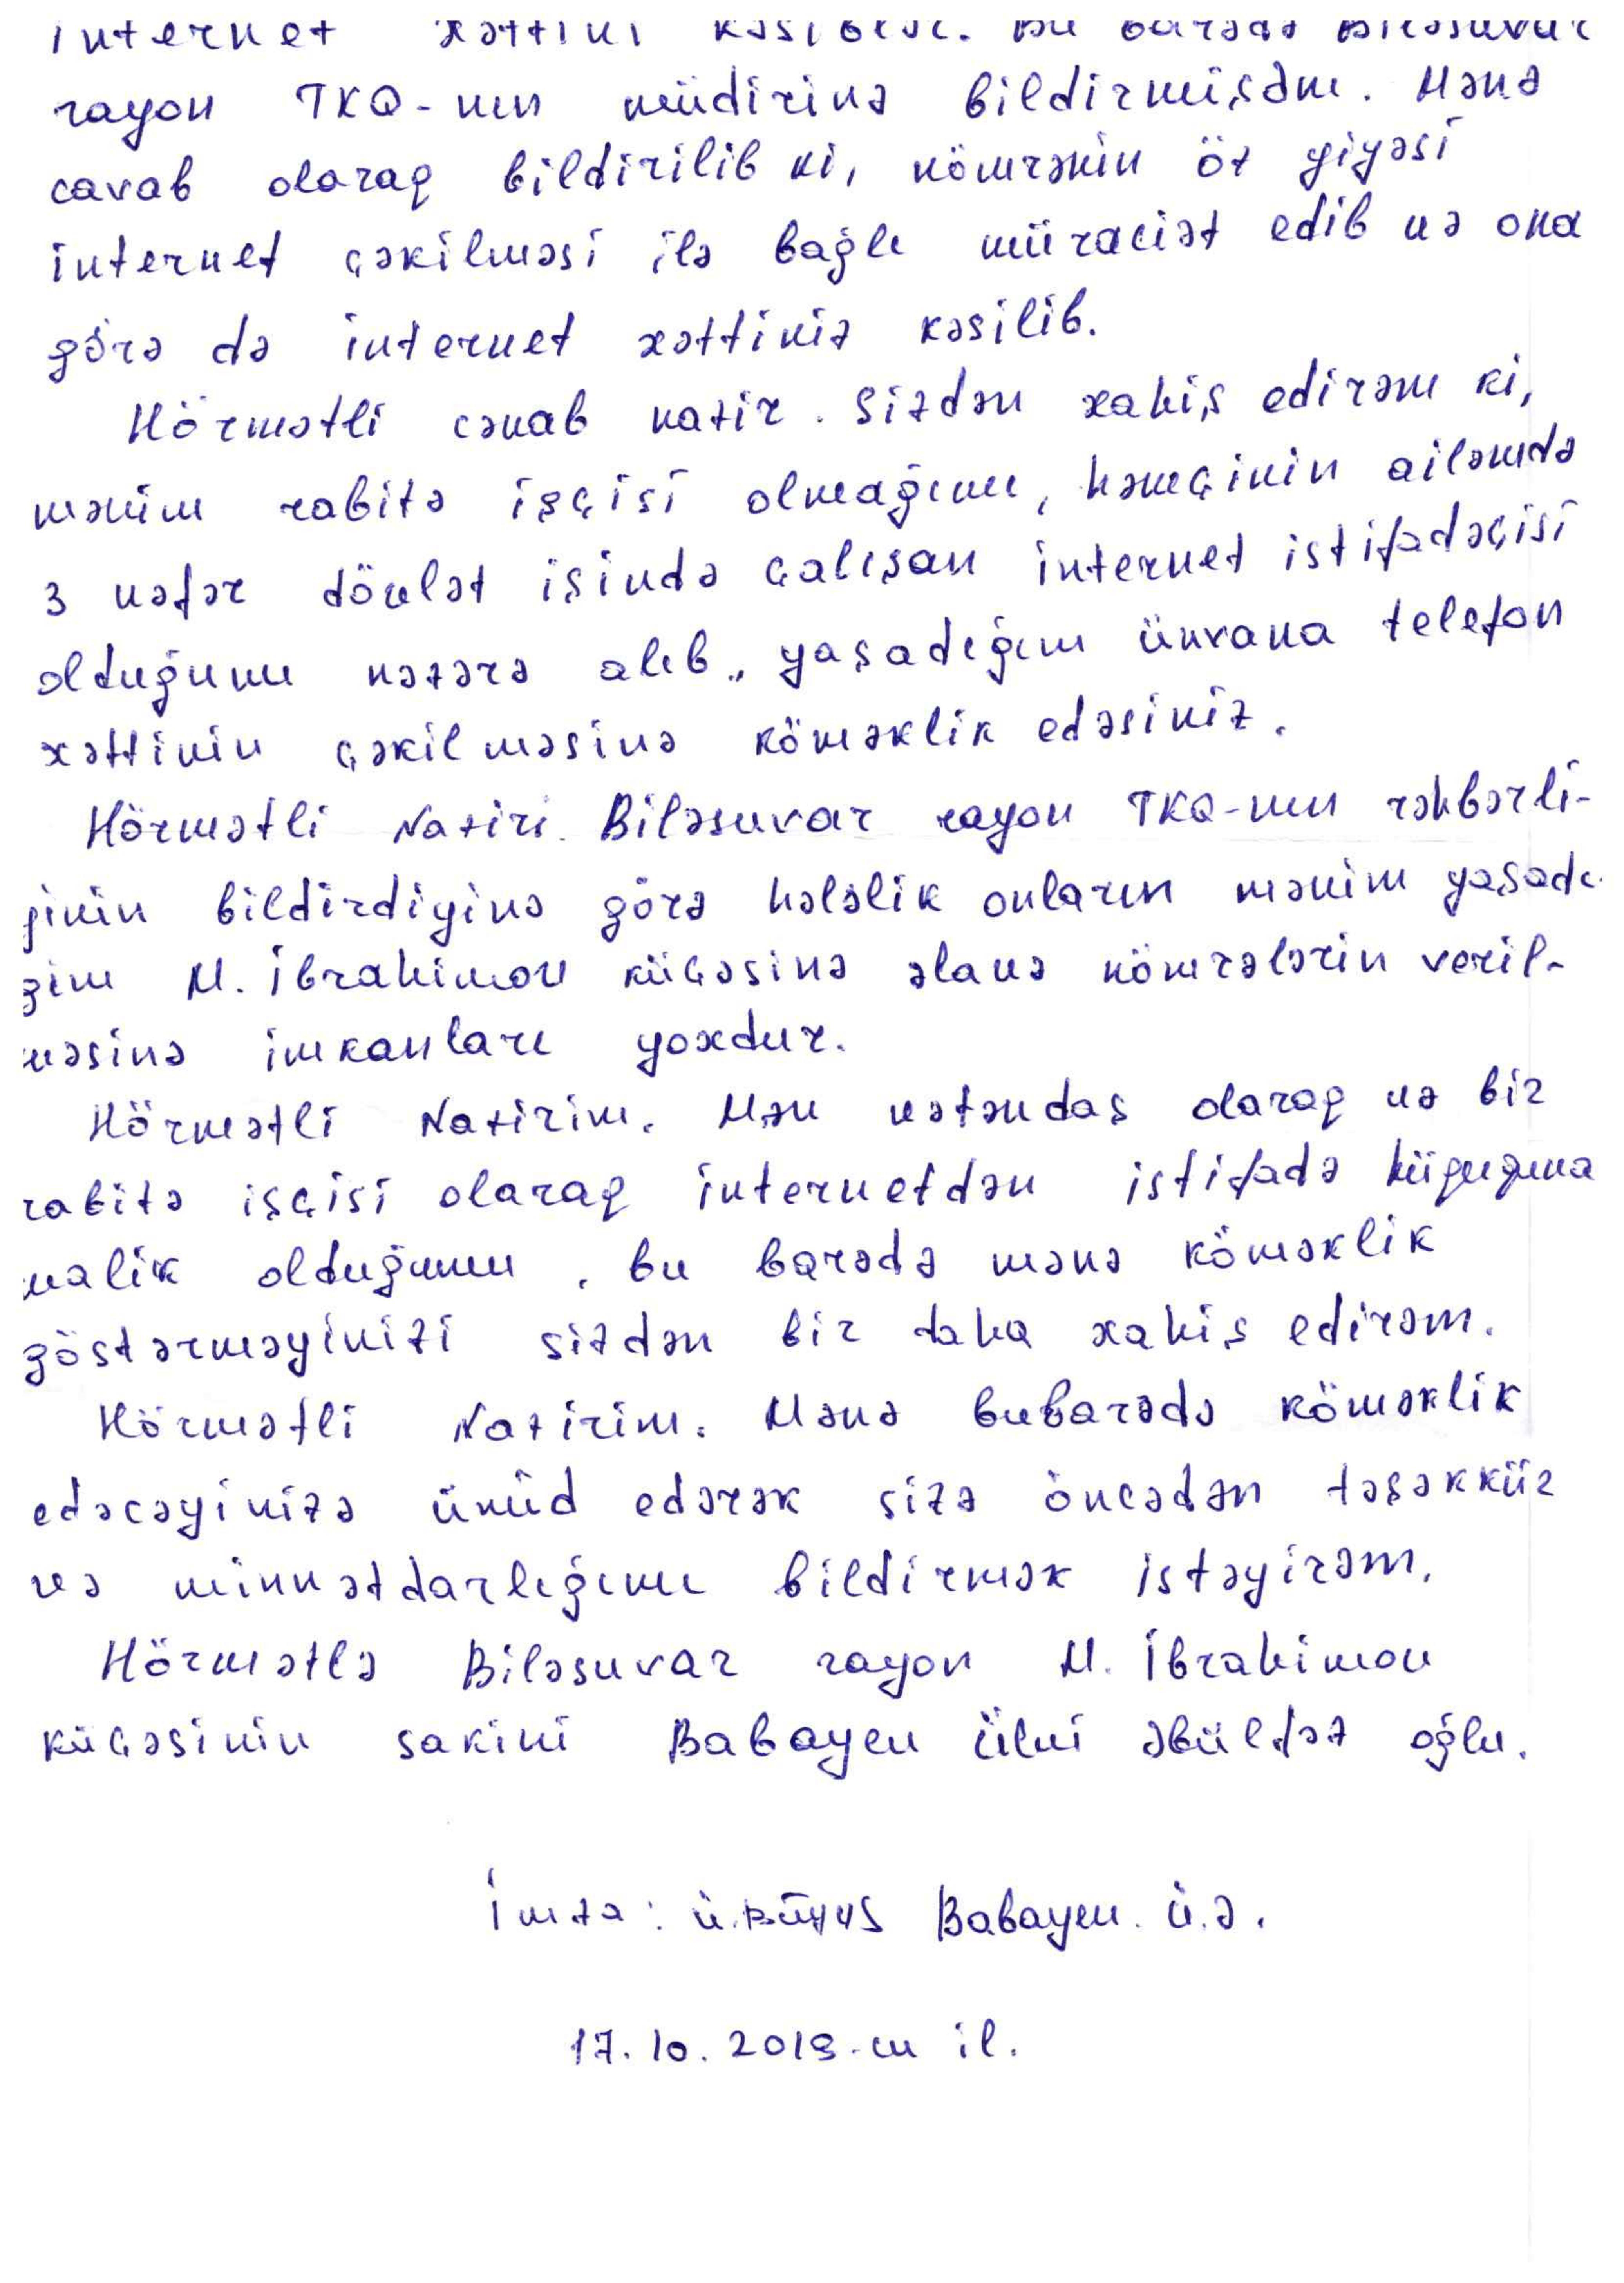 internet xəttini kəsiblər. Bu barədə Biləsuvar
rayon TKQ-nın müdirinə bildirmişəm. Mənə
cavab olaraq bildirilib ki, nömrənin öz yiyəsi
internet çəkilməsi ilə bağlı müraciət edib və ona
görə də internet xəttiniz kəsilib.
Hörmətli cənab nazir. Sizdən xahiş edirəm ki,
mənim rabitə işçisi olmağımı, həmçinin ailəmdə
3 nəfər dövlət işində çalışan internet istifadəçisi
olduğunu nəzərə alıb, yaşadığım ünvana telefon
xəttinin çəkilməsinə köməklik edəsiniz.
Hörmətli Naziri. Biləsuvar rayon TKQ-nın rəhbərli-
ginin bildirdiyinə görə hələlik onların mənim yaşadı-
gim M. İbrahimov küçəsinə əlavə nömrələrin veril-
məsinə imkanları yoxdur.
Hörmətli Nazirim. Mən vətəndaş olaraq və bir
rabitə işçisi olaraq internetdən istifadə hüququna
malik olduğumu, bu barədə mənə köməklik
göstərməyinizi sizdən bir daha xahiş edirəm.
Hörmətli Nazirim. Mənə bubarədə köməklik
edəcəyinizə ümüd edərək sizə öncədən təşəkkür
və minnətdarlığımı bildirmək istəyirəm.
Hörmətlə Biləsuvar rayon M. İbrahimov
küçəsinin sakini Babayev Ülvi Əbülfəz oğlu.
İmza: Babayev. Ü.Ə.
17.10.2019-cu il.